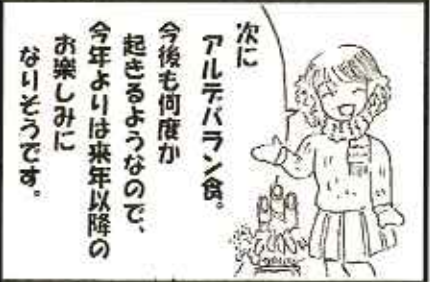 次に
アルデバラン食。
今後も何度か
起きるようなので、
今年よりは来年以降の
お楽しみに
なりそうです。